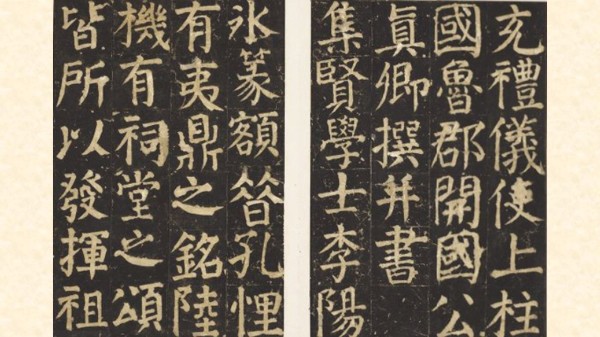 充禮儀使上柱
國魯郡開國公
眞卿撰并書
集賢學士李陽
氷篆額昔孔悝
有夷鼎之銘陸
機有祠堂之頌
皆所以發揮祖